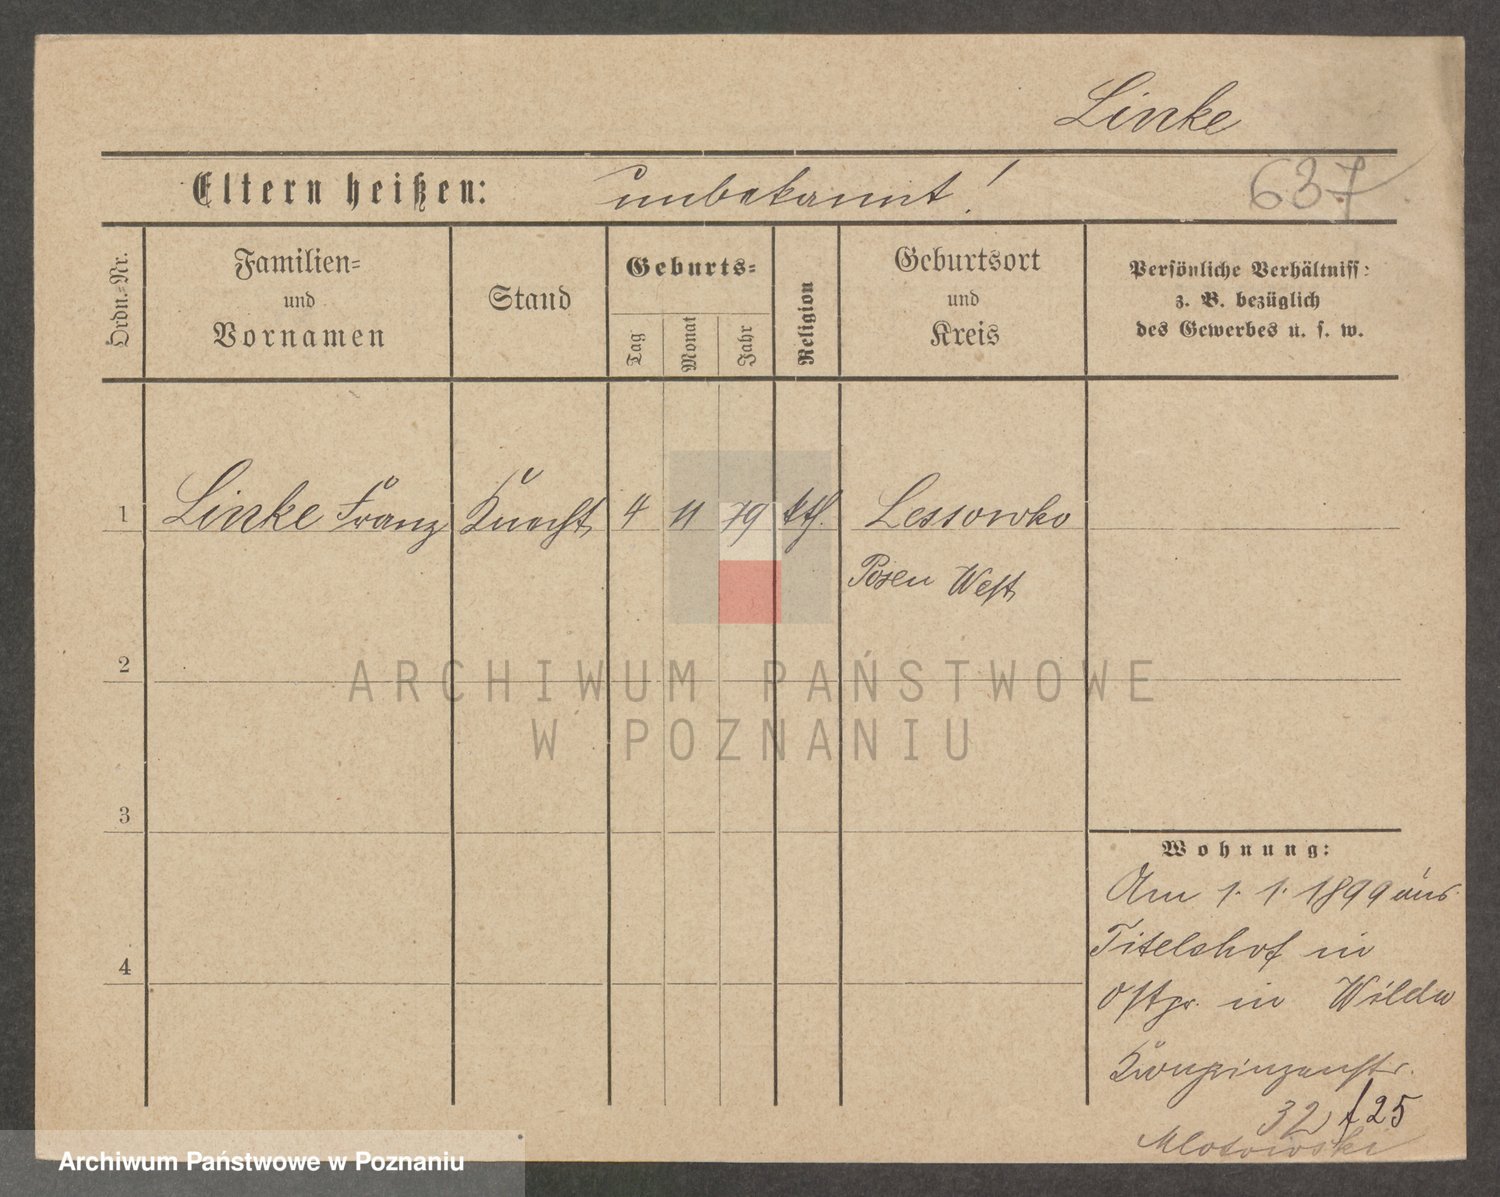 Linke
Eltern heißen: unbekannt!
637
Ordn.-Nr.
Familien-
und
Vornamen
Stand
Geburts-
Tag
Monat
Jahr
Religion
Geburtsort
und
Kreis
Persönliche Verhältniss:
z. B. bezüglich
des Gewerbes u. s. w.
1 Linke Franz Knecht 4 11 79 kth. Lessowko
Posen West
2
ARCHIWUM PAŃSTWOWE
W POZNANIU
3
Wohnung:
Am 1. 1. 1899 aus
Titelshof in
Ostpr. in Wilda
4
Kronprinzenstr.
32 f 25
Archiwum Państwowe w Poznaniu